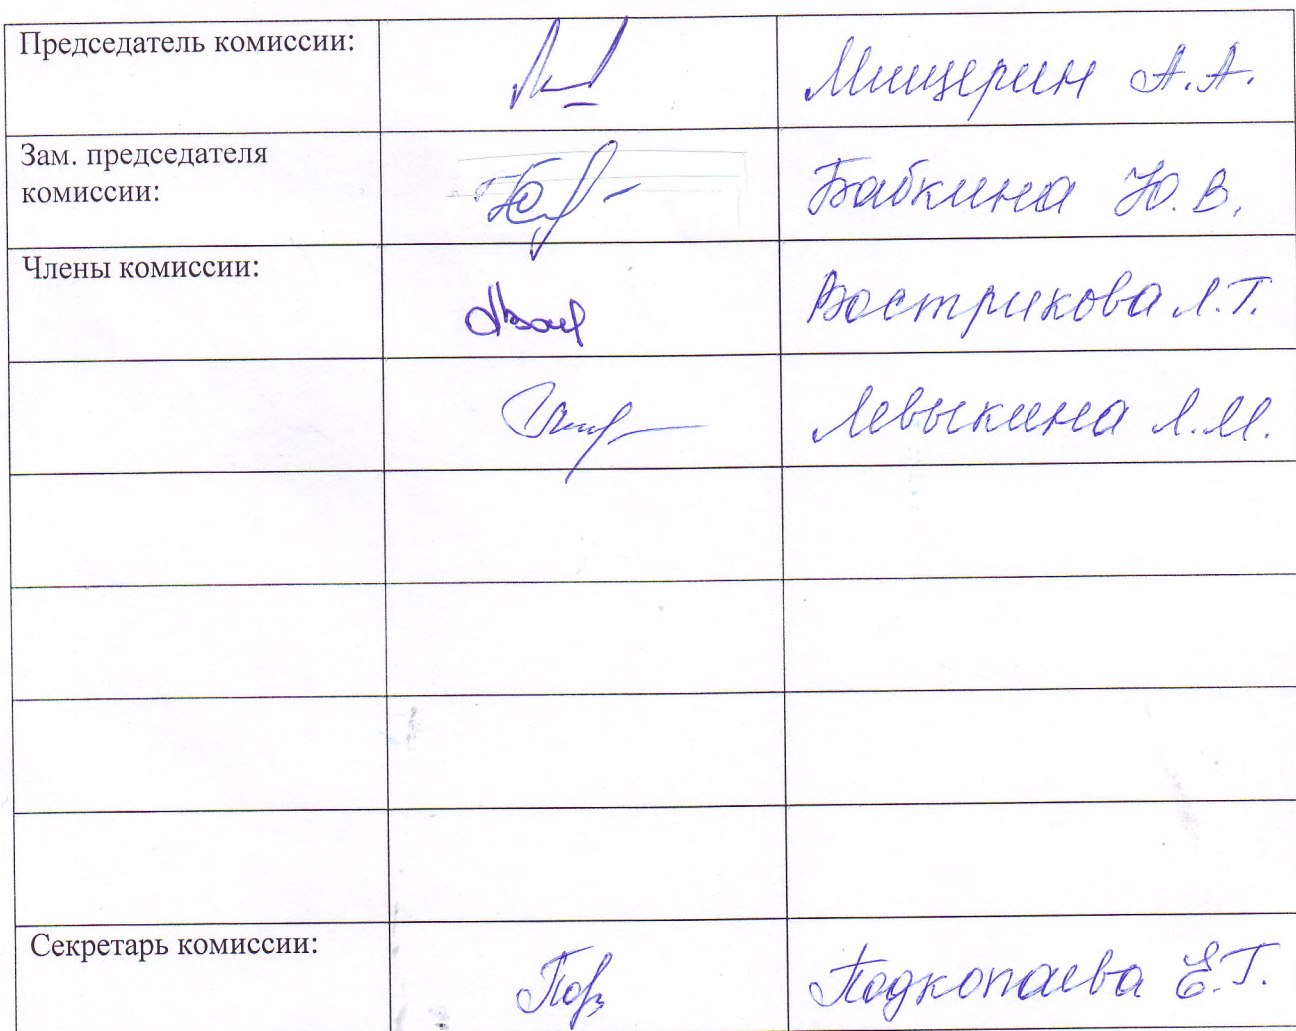 Председатель комиссии:
Мищерин А.А.
Зам. председателя
комиссии:
Бабкина Ю.В.
Члены комиссии:
Вострикова Л.Т.
Левыкина Л.М.
Секретарь комиссии:
Подкопаева Е.Г.